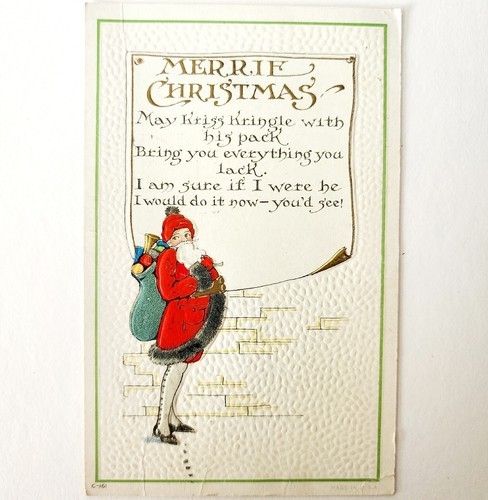 MERRIE
CHRISTMAS
May Kriss Kringle with
his pack
Bring you everything you
lack.
I am sure if I were he
I would do it now — you'd see!